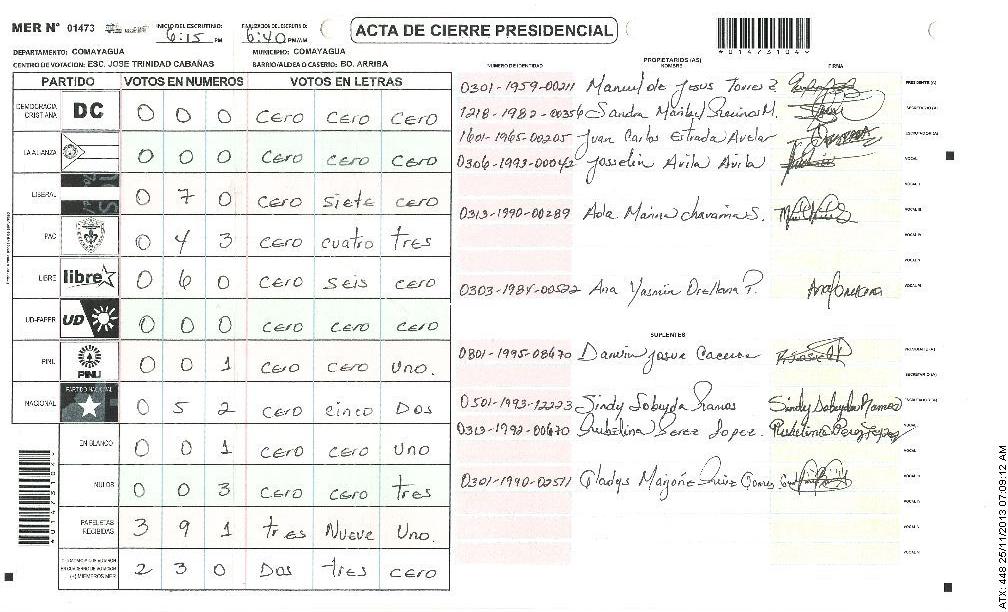 MER N° 01473 INICIO DEL ESCRUTINIO: 6:15 PM FINALIZACION DEL ESCRUTINIO: 6:40 PM/AM
ACTA DE CIERRE PRESIDENCIAL
401473104
DEPARTAMENTO: COMAYAGUA MUNICIPIO: COMAYAGUA
CENTRO DE VOTACION: ESC. JOSE TRINIDAD CABAÑAS BARRIO/ALDEA O CASERIO: BO. ARRIBA
PARTIDO VOTOS EN NUMEROS VOTOS EN LETRAS
DEMOCRACIA CRISTIANA DC 0 0 0 cero cero cero
LA ALIANZA 0 0 0 cero cero cero
LIBERAL 0 7 0 cero siete cero
PAC 0 4 3 cero cuatro tres
LIBRE libre 0 6 0 cero seis cero
UD-FAPER UD 0 0 0 cero cero cero
PINU PINU 0 0 1 cero cero uno.
NACIONAL PARTIDO NACIONAL 0 5 2 cero cinco Dos
EN BLANCO 0 0 1 cero cero uno
NULOS 0 0 3 cero cero tres
PAPELETAS RECIBIDAS 3 9 1 tres Nueve uno.
(+) MIEMBROS MER 2 3 0 Dos tres cero
PROPIETARIOS (AS)
NUMERO DE IDENTIDAD NOMBRE FIRMA
0301-1959-00211 Manuel de Jesus Torres PRESIDENTE (A)
1218-1982-00356 Sandra Maribel M. SECRETARIO (A)
1601-1965-00205 Juan Carlos Estrada Avelar ESCRUTADOR (A)
0306-1993-00042 Josselin Avila Avila VOCAL I
VOCAL II
0313-1990-00289 Ada Marina Chavarria S. VOCAL III
VOCAL IV
VOCAL V
0303-1984-00522 Ana Yasmin Orellana P. VOCAL VI
SUPLENTES
0801-1995-08670 Darwin Josue Caceres PRESIDENTE (A)
SECRETARIO (A)
0501-1993-12223 Sindy Sobeyda Ramos Sindy Sobeyda Ramos ESCRUTADOR (A)
0313-1992-00670 Rubelina Perez Lopez. Rubelina Perez Lopez VOCAL
0301-1990-02511 Gladys Marjorie Gomes
ATX: 448 25/11/2013 07:09:12 AM